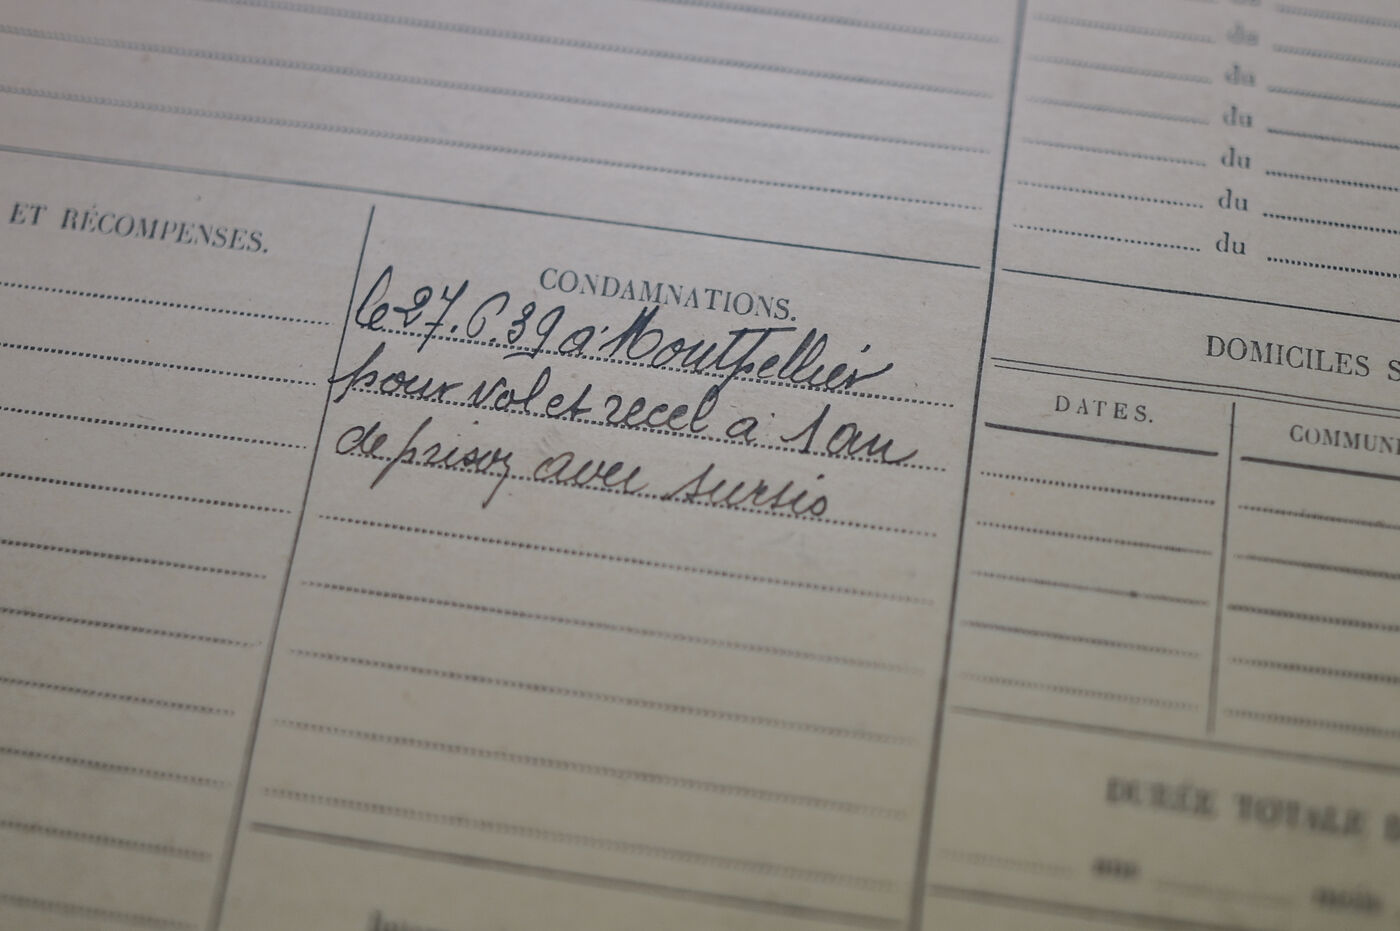 du
du
du
du
du
du
ET RÉCOMPENSES.
CONDAMNATIONS.
le 27.6.39 à Montpellier
pour vol et recel à 1 an
de prison avec sursis
DOMICILES S
DATES.
COMMUN
DURÉE TOTALE
ans
mois